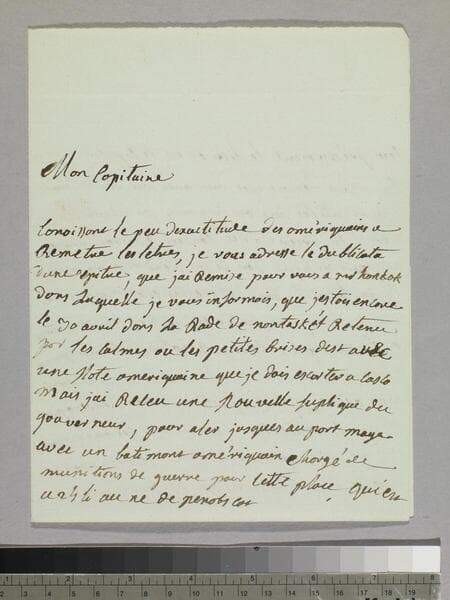 Mon Capitaine
Conoissant le peu dexactitude des amériquains a
Remetre les letres, je vous adresse le dublicata
d'une epitre, que jai Remise pour vous a
dans Laquelle je vous informois, que jestois encore
le 30 avril dans La Rade de nantaskét Retenu
par les calmes ou les petites brises dest
une flote ameriquaine que je dois escorter a casco
Mais jai Releu une Nouvelle suplique du
gouverneur, pour aler jusques au port maya
avec un batimant amériquain chargé de
munitions de guerre pour cette place, qui est
a 25 li au ne de penobscot